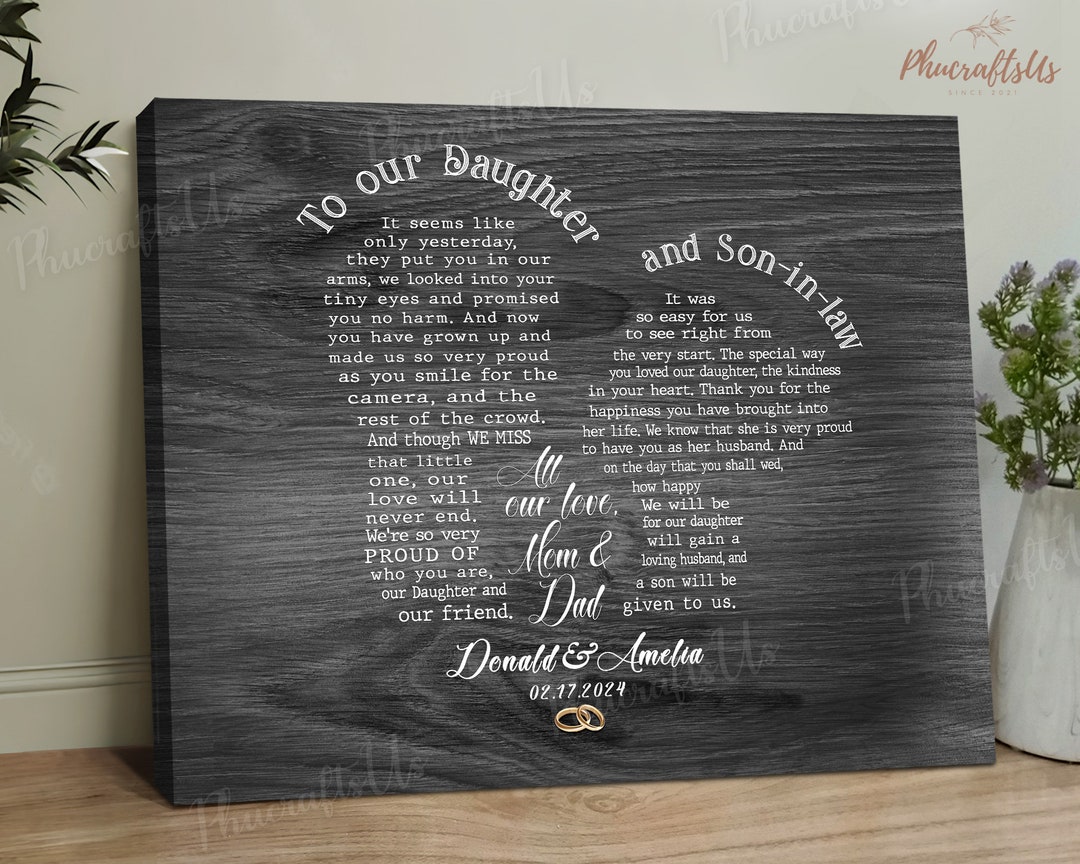 PhucraftsUs
SINCE 2021
To our Daughter
It seems like
only yesterday,
they put you in our
arms, we looked into your
tiny eyes and promised
you no harm. And now
you have grown up and
made us so very proud
as you smile for the
camera, and the
rest of the crowd.
And though WE MISS
that little
one, our
love will
never end.
We're so very
PROUD OF
who you are,
our Daughter and
our friend.
and Son-in-law
It was
so easy for us
to see right from
the very start. The special way
you loved our daughter, the kindness
in your heart. Thank you for the
happiness you have brought into
her life. We know that she is very proud
to have you as her husband. And
on the day that you shall wed,
how happy
We will be
for our daughter
will gain a
loving husband, and
a son will be
given to us.
All
our love,
Mom &
Dad
Donald & Amelia
02.17.2024
PhucraftsUs
PhucraftsUs
PhucraftsUs
PhucraftsUs
PhucraftsUs
PhucraftsUs